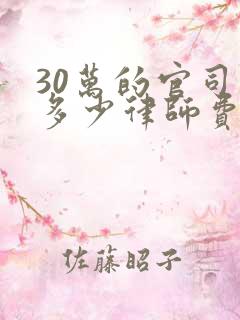 30萬的官司
多少律師費
佐藤昭子